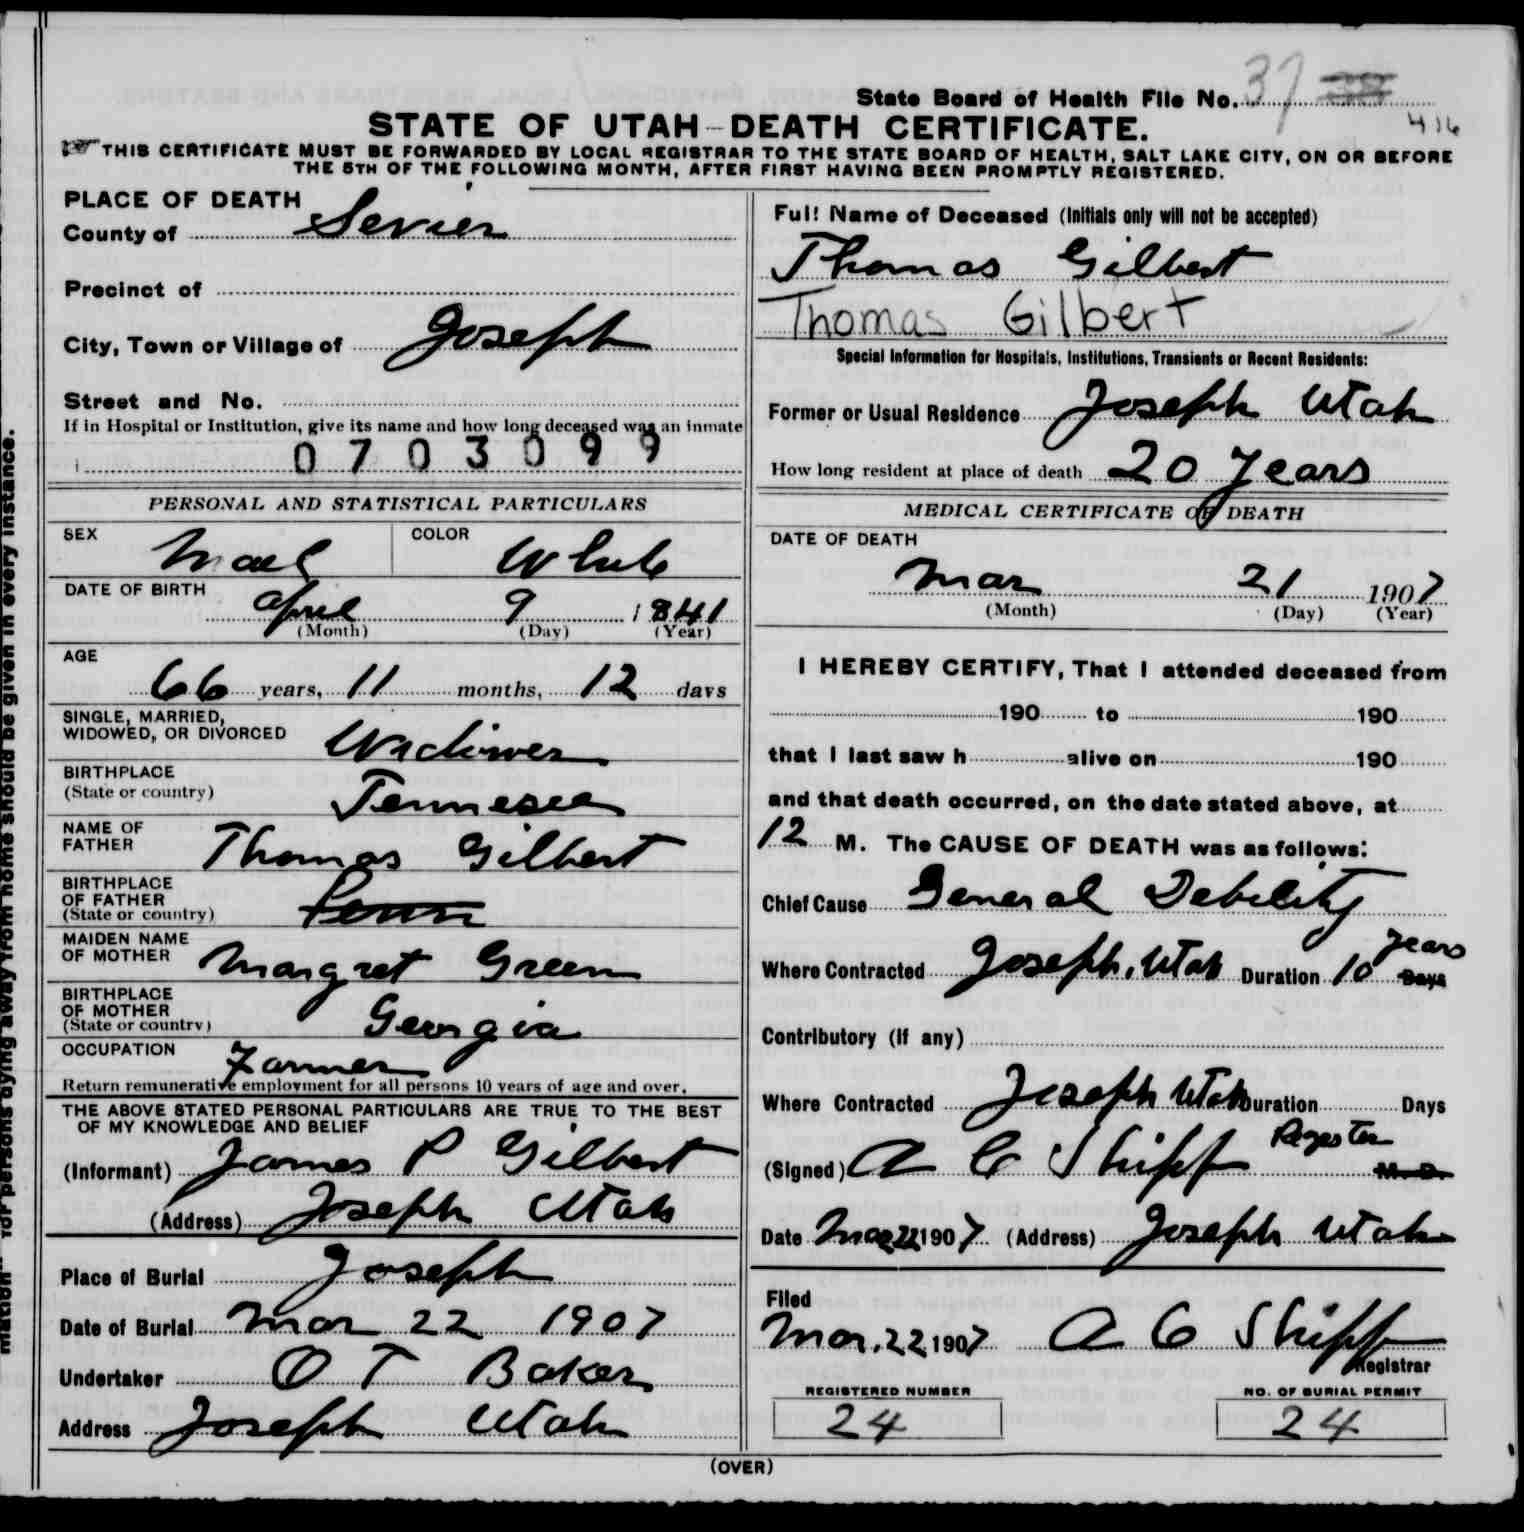 State Board of Health File No. 37
416
STATE OF UTAH—DEATH CERTIFICATE.
THIS CERTIFICATE MUST BE FORWARDED BY LOCAL REGISTRAR TO THE STATE BOARD OF HEALTH, SALT LAKE CITY, ON OR BEFORE
THE 5TH OF THE FOLLOWING MONTH, AFTER FIRST HAVING BEEN PROMPTLY REGISTERED.
PLACE OF DEATH
County of Sevier
Precinct of
City, Town or Village of Joseph
Street and No.
If in Hospital or Institution, give its name and how long deceased was an inmate
0703099
PERSONAL AND STATISTICAL PARTICULARS
SEX Mael COLOR White
DATE OF BIRTH
April 9 1841
(Month) (Day) (Year)
AGE
66 years, 11 months, 12 days
SINGLE, MARRIED,
WIDOWED, OR DIVORCED Widower
BIRTHPLACE
(State or country) Tennesee
NAME OF
FATHER Thomas Gilbert
BIRTHPLACE
OF FATHER
(State or country) Penn
MAIDEN NAME
OF MOTHER Margret Green
BIRTHPLACE
OF MOTHER
(State or country) Georgia
OCCUPATION Farmer
Return remunerative employment for all persons 10 years of age and over.
THE ABOVE STATED PERSONAL PARTICULARS ARE TRUE TO THE BEST
OF MY KNOWLEDGE AND BELIEF
(Informant) James P Gilbert
(Address) Joseph Utah
Place of Burial Joseph
Date of Burial Mar 22 1907
Undertaker O T Baker
Address Joseph Utah
Full Name of Deceased (Initials only will not be accepted)
Thomas Gilbert
Thomas Gilbert
Special Information for Hospitals, Institutions, Transients or Recent Residents:
Former or Usual Residence Joseph Utah
How long resident at place of death 20 Years
MEDICAL CERTIFICATE OF DEATH
DATE OF DEATH
Mar 21 1907
(Month) (Day) (Year)
I HEREBY CERTIFY, That I attended deceased from
190 to 190
that I last saw h alive on 190
and that death occurred, on the date stated above, at
12 M. The CAUSE OF DEATH was as follows:
Chief Cause General Debility
Where Contracted Joseph, Utah Duration 10 years Days
Contributory (If any)
Where Contracted Joseph Utah Duration Days
(Signed) A C Shipp Regester M.D.
Date Mar 22 1907 (Address) Joseph Utah
Filed
Mar. 22 1907 A C Shipp
Registrar
REGISTERED NUMBER
24
NO. OF BURIAL PERMIT
24
(OVER)
for persons dying away from home should be given in every instance.